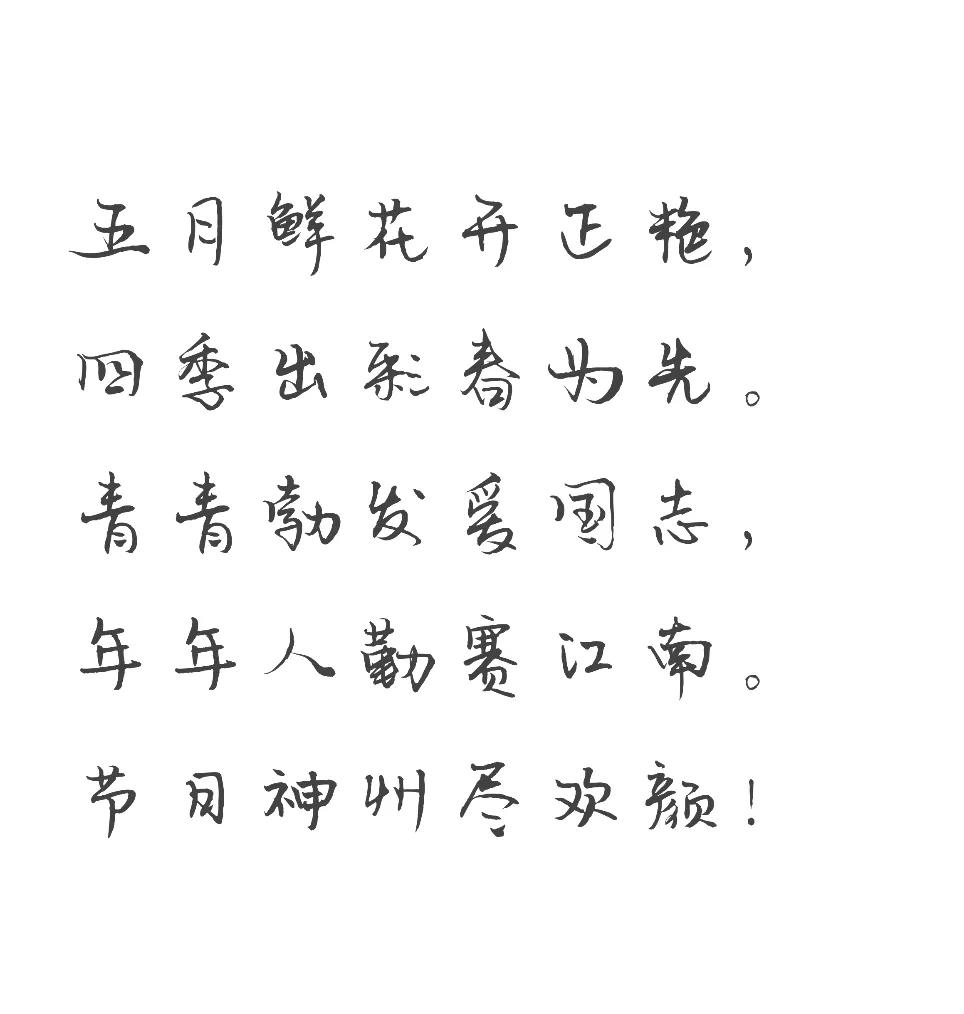 五月鲜花开正艳，
四季出彩春为先。
青青勃发爱国志，
年年人勤赛江南。
节日神州尽欢颜！